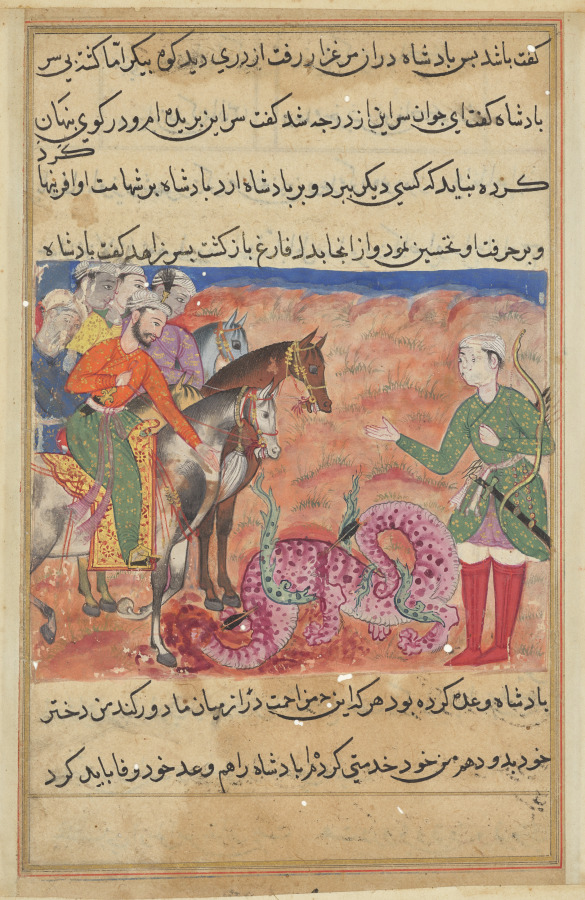 کفت باشد پس پادشاه در از مرغزار رفت اژدری دید کوه پیکر اما کشته بی سر
پادشاه کفت ای جوان سر این اژدر چه شد کفت سر این بریده ام و در کوی پنهان
کرد
کرده نباید که کسی دیکر ببرد و بر پادشاه ارد پادشاه بر شهامت او افرینها
و بر حرفت او تحسین نمود و از انجا بدل فارغ باز کشت پسر زاهد کفت پادشاه
پادشاه وعده کرده بود هر که این چنین زحمت از میان ما دور کند من دختر
خود بدو دهم من خود خدمتی کردم پادشاه را هم وعد خود وفا باید کرد